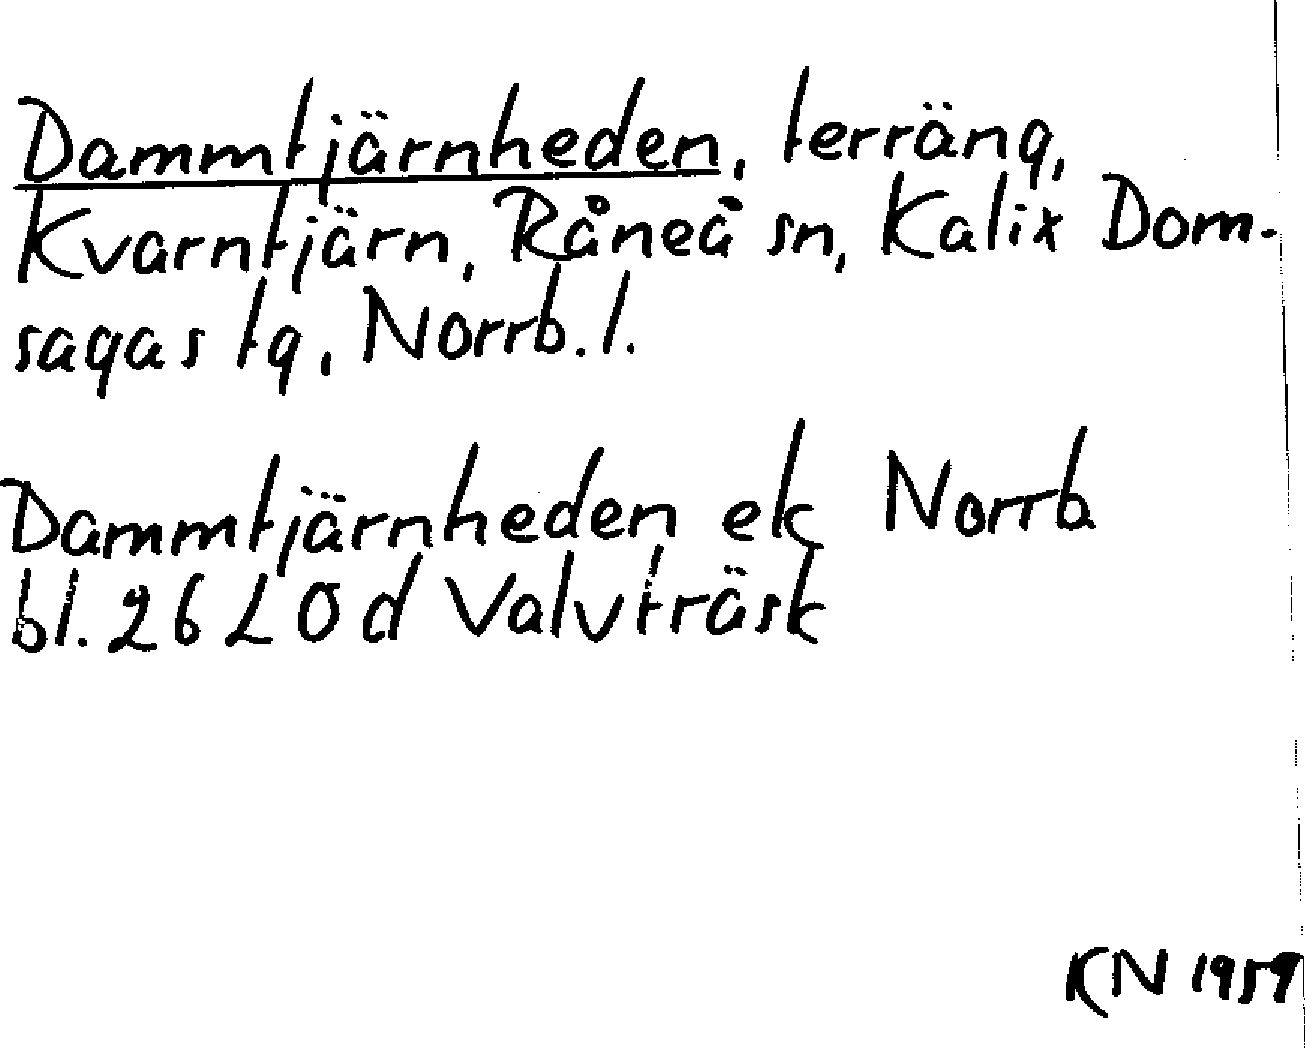 Dammtjärnheden, terräng,
Kvarntjärn, Råneå sn, Kalix Dom-
sagas tg, Norrb. l.
Dammtjärnheden ek Norrb
bl. 26 L 0 d Valvträsk
KN 1959